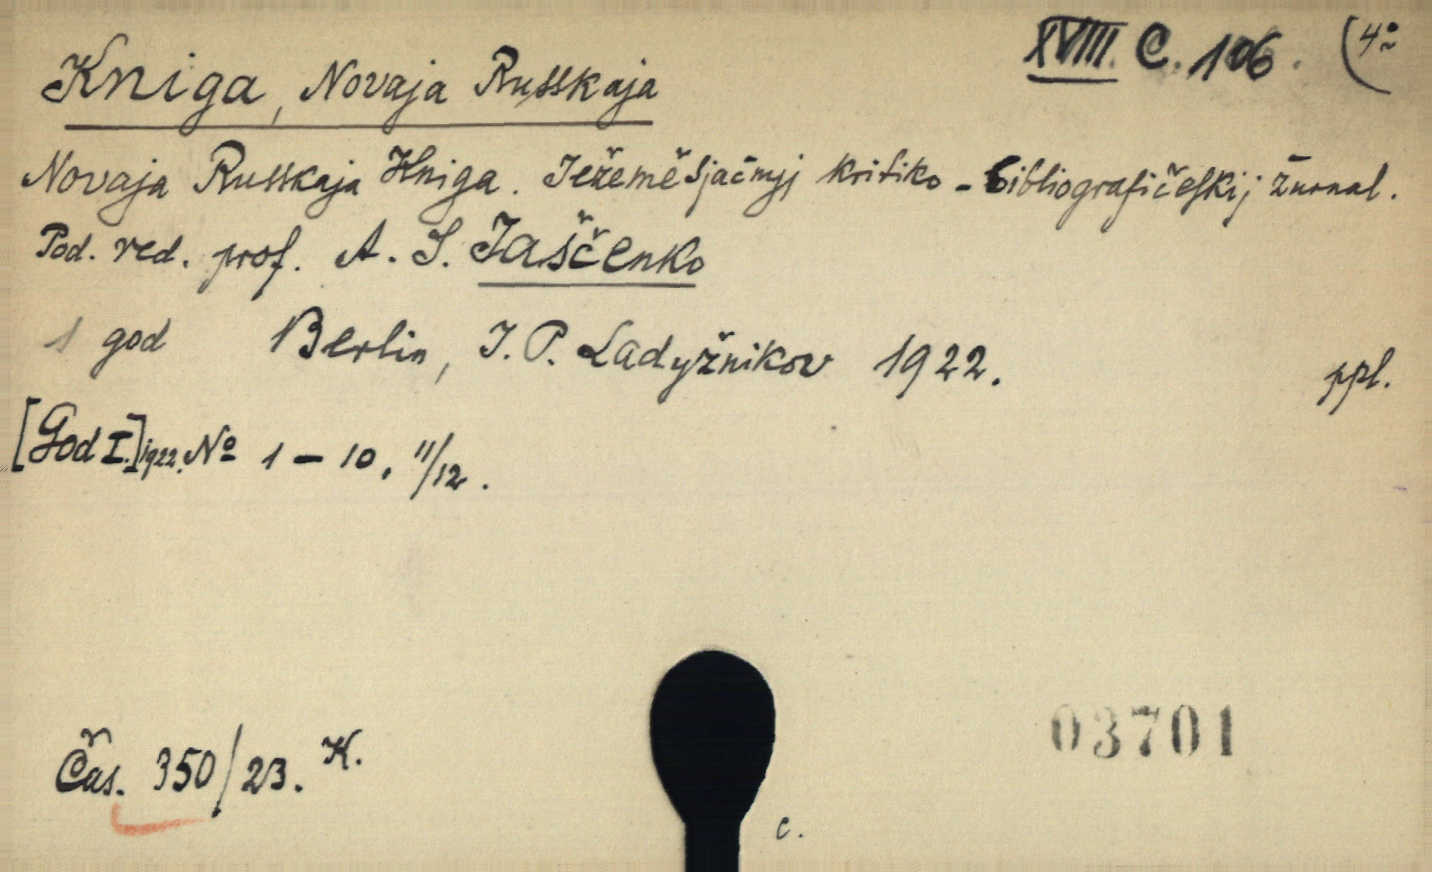 XVIII. C. 106. (4°
Kniga, Novaja Russkaja
Novaja Russkaja Kniga. Ježeměsjačnyj kritiko-bibliografičeskij žurnal.
Pod. red. prof. A. S. Jaščenko
1 god Berlin, I. P. Ladyžnikov 1922. ppl.
[God I.] 1922. No 1 – 10, 11/12.
Čas. 350/23. K.
03701
c.